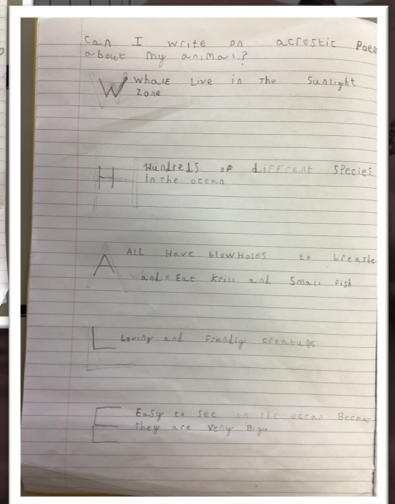 Can I write an acrostic Poem
about my animal?
W Whale Live in The Sunlight
Zone
H Hundreds of different Species
in the ocean
A ALL Have blowHoles to breathe
and Eat krill and Small Fish
L Loving and
E Easy to See in the ocean Because
They are Very Big.